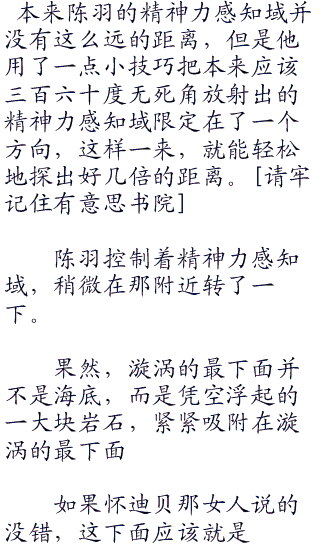 本来陈羽的精神力感知域并
没有这么远的距离，但是他
用了一点小技巧把本来应该
三百六十度无死角放射出的
精神力感知域限定在了一个
方向，这样一来，就能轻松
地探出好几倍的距离。[请牢
记住有意思书院]
陈羽控制着精神力感知
域，稍微在那附近转了一
下。
果然，漩涡的最下面并
不是海底，而是凭空浮起的
一大块岩石，紧紧吸附在漩
涡的最下面
如果怀迪贝那女人说的
没错，这下面应该就是